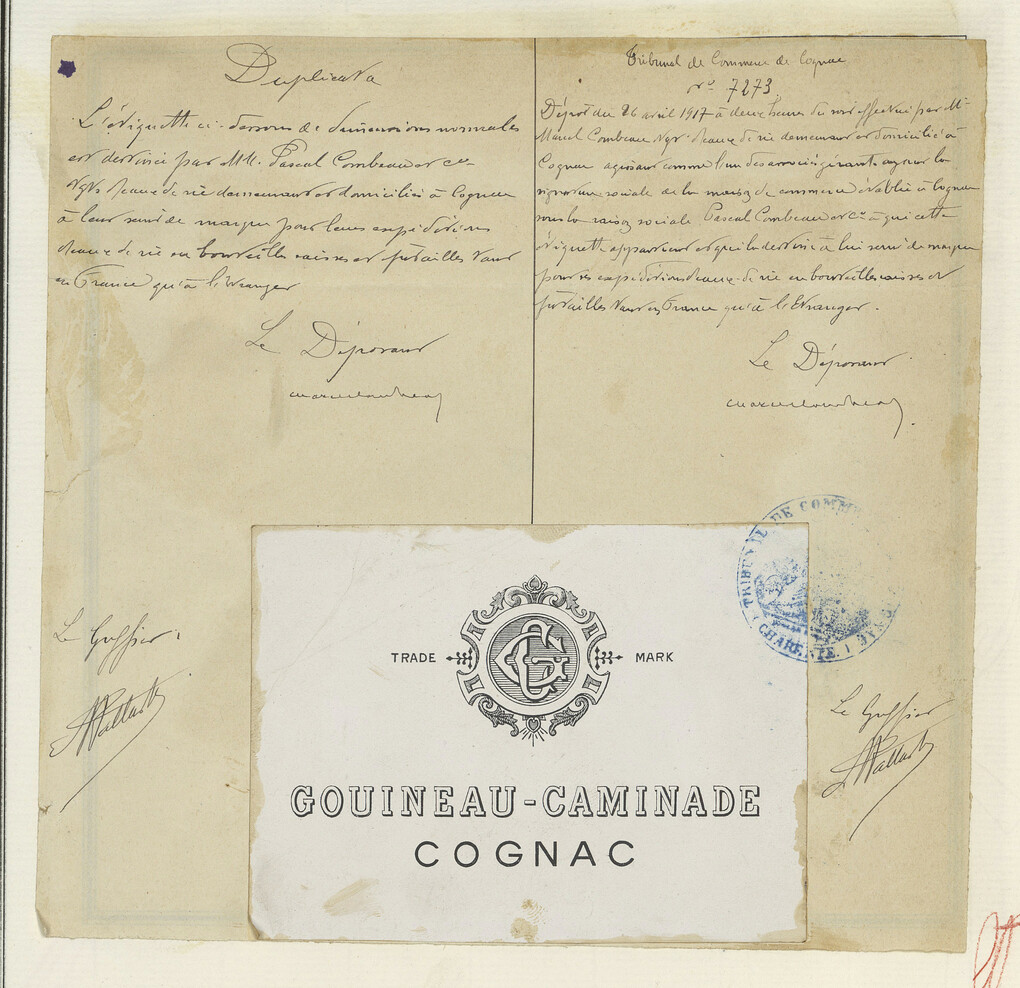 Duplicata
L'étiquette ci-dessous de dimensions normales
est destinée par MM. Pascal Combeau et Cie
Ngts d'eaux de vie demeurant et domiciliés à Cognac
à leur servir de marque pour leurs expéditions
d'eaux de vie en bouteilles caisses et futailles tant
en France qu'à l'étranger
Le Déposant
Marcel Combeau
Le Greffier
Tribunal de Commerce de Cognac
No 7273
Dépôt du 26 avril 1917 à deux heures du soir effectué par M.
Marcel Combeau Ngt d'eaux de vie demeurant et domicilié à
Cognac agissant comme l'un des associés gérants ayant la
signature sociale de la maison de commerce établie à Cognac
sous la raison sociale Pascal Combeau et Cie à qui cette
étiquette appartient et qui la destine à lui servir de marque
pour ses expéditions d'eaux-de-vie en bouteilles caisses et
futailles tant en France qu'à l'Etranger.
Le Déposant
Marcel Combeau
TRIBUNAL DE COMM
(CHARENTE)
Le Greffier
TRADE MARK
GOUINEAU-CAMINADE
COGNAC